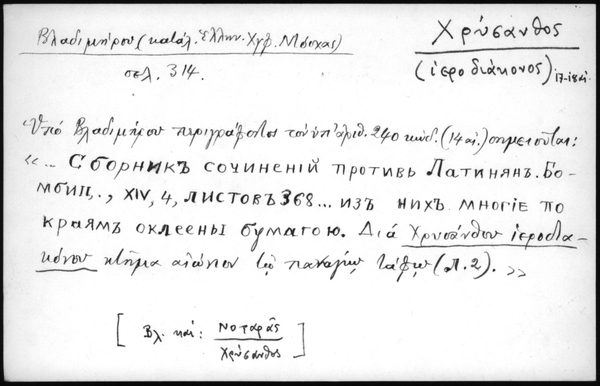 Βλαδιμήρου (κατάλ. Ἑλλην. Χγφ. Μόσχας)
σελ. 314.
Χρύσανθος
(ἱεροδιάκονος) 17-18 αἰ.
Ὑπό Βλαδιμήρου περιγράφοντος τόν ὑπ' ἀριθ. 240 κώδ. (14 αἰ.) σημειοῦται:
«... Сборникъ сочиненій противъ Латинянъ. Бо-
мбиц., XIV, 4, листовъ 368... изъ нихъ многіе по
краямъ оклеены бумагою. Διά Χρυσάνθου ἱεροδια-
κόνου κτῆμα αἰώνιον τῷ παναγίῳ τάφῳ (л. 2). »
[ Βλ. καί: Νοταρᾶς
Χρύσανθος ]